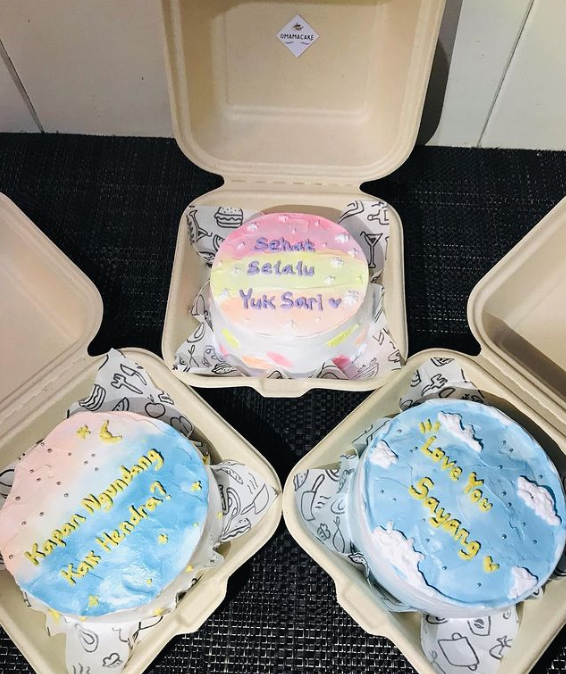 OMAMACAKE
Sehat
Selalu
Yuk Sari
Kapan Ngundang
Kak Hendra?
Love You
Sayang